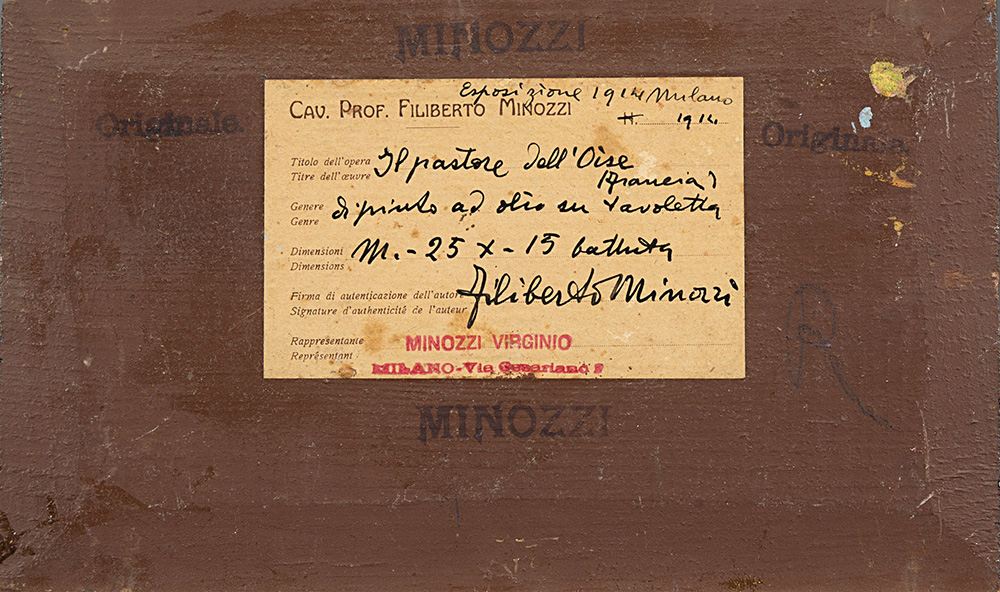 MINOZZI
Esposizione 1914 Milano
CAV. PROF. FILIBERTO MINOZZI
H. 1914
Originale.
Originale.
Titolo dell'opera Il pastore dell'Oise
Titre dell'œuvre (Francia)
Genere dipinto ad olio su tavoletta
Genre
Dimensioni M. - 25 x - 15 battuta
Dimensions
Firma di autenticazione dell'autore Filiberto Minozzi
Signature d'authenticité de l'auteur
Rappresentante MINOZZI VIRGINIO
Représentant MILANO - Via Cesariano 8
MINOZZI